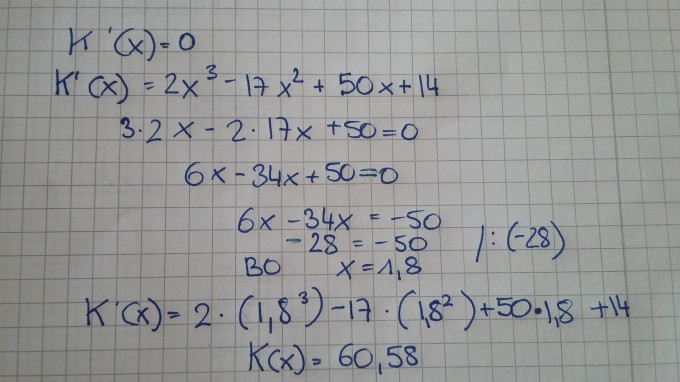 K'(x)=0
K'(x) = 2x³ - 17x² + 50x+14
3·2x - 2·17x +50=0
6x-34x+50=0
6x -34x = -50
-28 = -50 /: (-28)
BO x=1,8
K'(x)= 2·(1,8³)-17·(1,8²)+50·1,8 +14
K(x)= 60,58